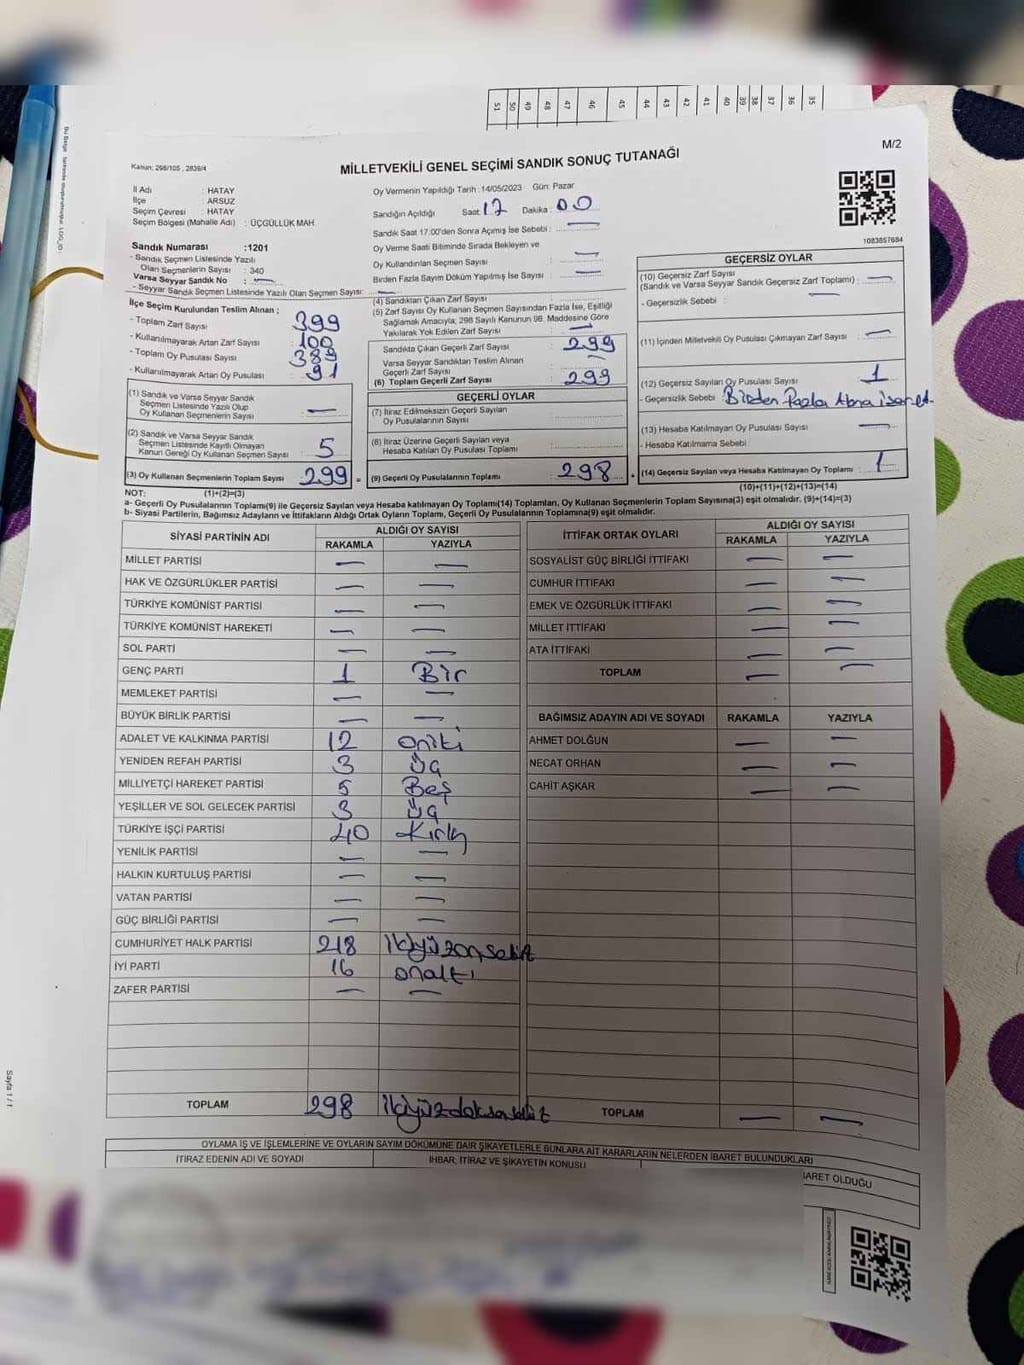 51 50 49 48 47 46 45 44 43 42 41 40 39 38 37 36 35
M/2
Kanun: 298/105 , 2839/4
MİLLETVEKİLİ GENEL SEÇİMİ SANDIK SONUÇ TUTANAĞI
İl Adı : HATAY
İlçe : ARSUZ
Seçim Çevresi : HATAY
Seçim Bölgesi (Mahalle Adı) : ÜÇGÜLLÜK MAH.
Sandık Numarası :1201
- Sandık Seçmen Listesinde Yazılı
Olan Seçmenlerin Sayısı : 340
Varsa Seyyar Sandık No : —
- Seyyar Sandık Seçmen Listesinde Yazılı Olan Seçmen Sayısı: —
Oy Vermenin Yapıldığı Tarih :14/05/2023 Gün: Pazar
Sandığın Açıldığı Saat 17 Dakika : 00
Sandık Saat 17:00'den Sonra Açılmış İse Sebebi : —
Oy Verme Saati Bitiminde Sırada Bekleyen ve
Oy Kullandırılan Seçmen Sayısı —
Birden Fazla Sayım Döküm Yapılmış İse Sayısı —
1083857684
İlçe Seçim Kurulundan Teslim Alınan ;
- Toplam Zarf Sayısı : 399
- Kullanılmayarak Artan Zarf Sayısı : 100
- Toplam Oy Pusulası Sayısı : 389
- Kullanılmayarak Artan Oy Pusulası : 91
(1) Sandık ve Varsa Seyyar Sandık
Seçmen Listesinde Yazılı Olup
Oy Kullanan Seçmenlerin Sayısı —
(2) Sandık ve Varsa Seyyar Sandık
Seçmen Listesinde Kayıtlı Olmayan
Kanun Gereği Oy Kullanan Seçmen Sayısı 5
(3) Oy Kullanan Seçmenlerin Toplam Sayısı 299
(4) Sandıktan Çıkan Zarf Sayısı
(5) Zarf Sayısı Oy Kullanan Seçmen Sayısından Fazla İse, Eşitliği
Sağlamak Amacıyla; 298 Sayılı Kanunun 98. Maddesine Göre
Yakılarak Yok Edilen Zarf Sayısı —
Sandıkta Çıkan Geçerli Zarf Sayısı 299
Varsa Seyyar Sandıktan Teslim Alınan
Geçerli Zarf Sayısı —
(6) Toplam Geçerli Zarf Sayısı 299
GEÇERLİ OYLAR
(7) İtiraz Edilmeksizin Geçerli Sayılan
Oy Pusulalarının Sayısı
(8) İtiraz Üzerine Geçerli Sayılan veya
Hesaba Katılan Oy Pusulası Toplamı
= (9) Geçerli Oy Pusulalarının Toplamı 298 +
GEÇERSİZ OYLAR
(10) Geçersiz Zarf Sayısı
(Sandık ve Varsa Seyyar Sandık Geçersiz Zarf Toplamı) —
- Geçersizlik Sebebi : —
(11) İçinden Milletvekili Oy Pusulası Çıkmayan Zarf Sayısı —
(12) Geçersiz Sayılan Oy Pusulası Sayısı 1
- Geçersizlik Sebebi Birden Fazla Alana İşaret
(13) Hesaba Katılmayan Oy Pusulası Sayısı —
- Hesaba Katılmama Sebebi
(14) Geçersiz Sayılan veya Hesaba Katılmayan Oy Toplamı 1
NOT: (1)+(2)=(3) (10)+(11)+(12)+(13)=(14)
a- Geçerli Oy Pusulalarının Toplamı(9) ile Geçersiz Sayılan veya Hesaba katılmayan Oy Toplamı(14) Toplamları, Oy Kullanan Seçmenlerin Toplam Sayısına(3) eşit olmalıdır. (9)+(14)=(3)
b- Siyasi Partilerin, Bağımsız Adayların ve İttifakların Aldığı Ortak Oyların Toplamı, Geçerli Oy Pusulalarının Toplamına(9) eşit olmalıdır.
SİYASİ PARTİNİN ADI ALDIĞI OY SAYISI
RAKAMLA YAZIYLA
MİLLET PARTİSİ — —
HAK VE ÖZGÜRLÜKLER PARTİSİ — —
TÜRKİYE KOMÜNİST PARTİSİ — —
TÜRKİYE KOMÜNİST HAREKETİ — —
SOL PARTİ — —
GENÇ PARTİ 1 Bir
MEMLEKET PARTİSİ — —
BÜYÜK BİRLİK PARTİSİ — —
ADALET VE KALKINMA PARTİSİ 12 oniki
YENİDEN REFAH PARTİSİ 3 Üç
MİLLİYETÇİ HAREKET PARTİSİ 5 Beş
YEŞİLLER VE SOL GELECEK PARTİSİ 3 Üç
TÜRKİYE İŞÇİ PARTİSİ 40 Kırk
YENİLİK PARTİSİ — —
HALKIN KURTULUŞ PARTİSİ — —
VATAN PARTİSİ — —
GÜÇ BİRLİĞİ PARTİSİ — —
CUMHURİYET HALK PARTİSİ 218 ikiyüzonsekiz
İYİ PARTİ 16 onaltı
ZAFER PARTİSİ — —
TOPLAM 298 ikiyüzdoksansekiz
İTTİFAK ORTAK OYLARI ALDIĞI OY SAYISI
RAKAMLA YAZIYLA
SOSYALİST GÜÇ BİRLİĞİ İTTİFAKI — —
CUMHUR İTTİFAKI — —
EMEK VE ÖZGÜRLÜK İTTİFAKI — —
MİLLET İTTİFAKI — —
ATA İTTİFAKI — —
TOPLAM — —
BAĞIMSIZ ADAYIN ADI VE SOYADI RAKAMLA YAZIYLA
AHMET DOLĞUN — —
NECAT ORHAN — —
CAHİT AŞKAR — —
TOPLAM — —
OYLAMA İŞ VE İŞLEMLERİNE VE OYLARIN SAYIM DÖKÜMÜNE DAİR ŞİKAYETLERLE BUNLARA AİT KARARLARIN NELERDEN İBARET BULUNDUKLARI
İTİRAZ EDENİN ADI VE SOYADI İHBAR, İTİRAZ VE ŞİKAYETİN KONUSU
BARET OLDUĞU
Sayfa 1 / 1